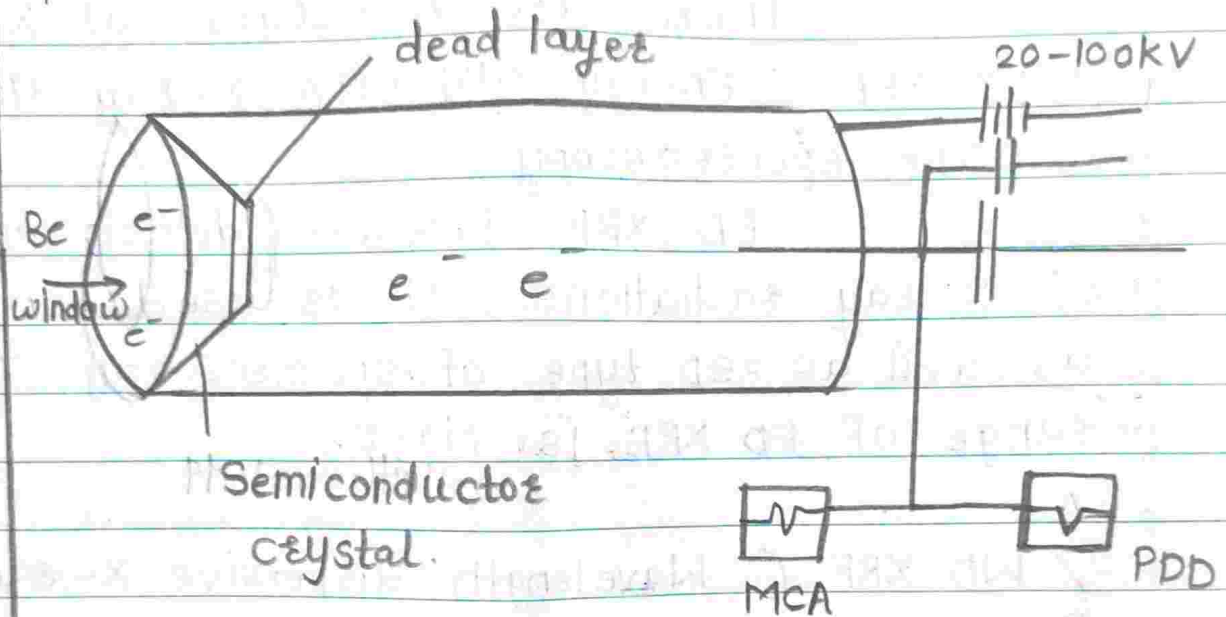 dead layer
20-100kV
Be
window
e-
e-
e- e-
Semiconductor
crystal.
MCA
PDD